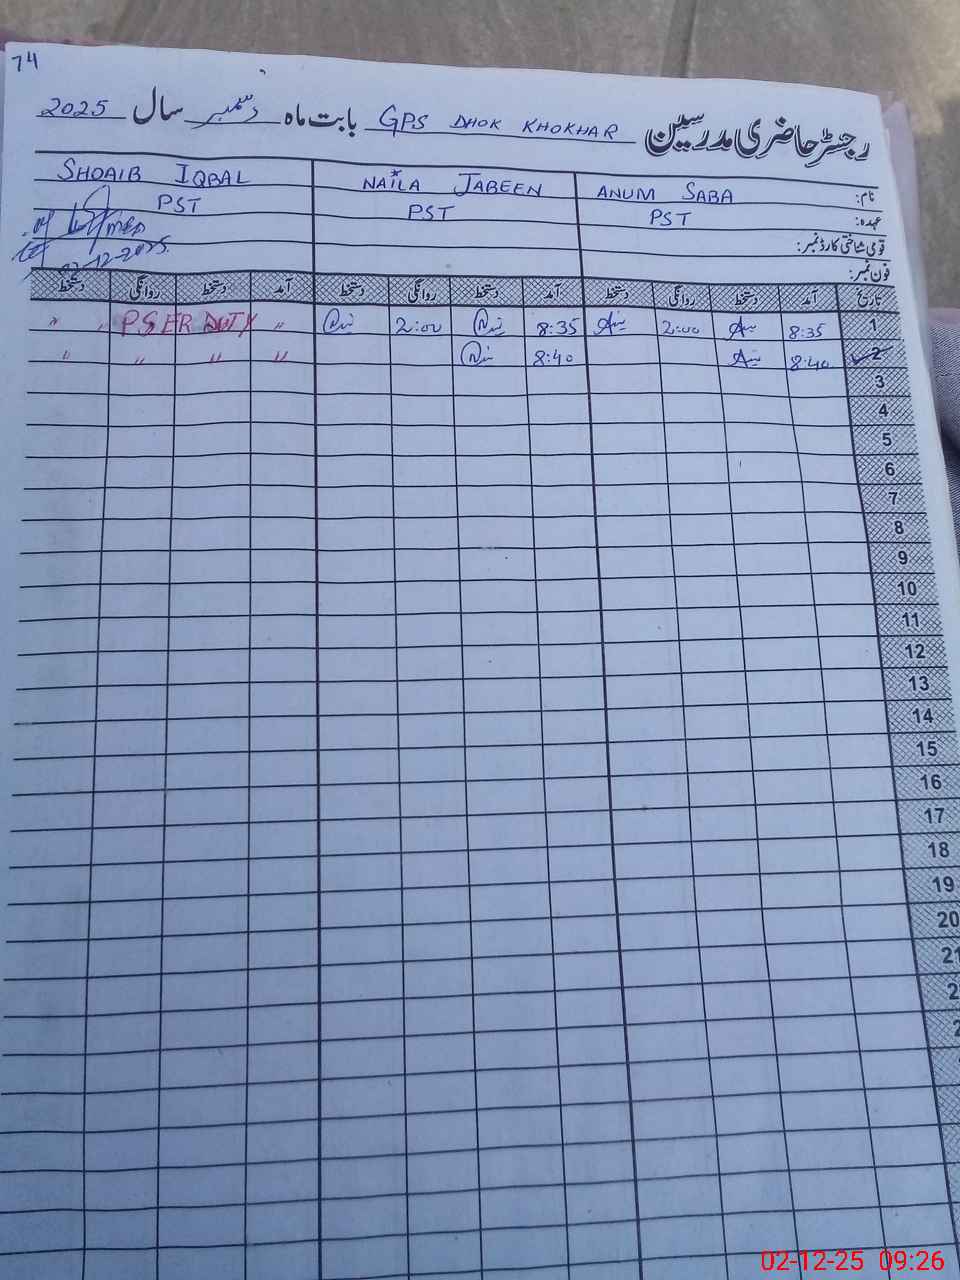 74
رجسٹر حاضری مدرسین GPS DHOK KHOKHAR بابت ماہ دسمبر سال 2025
نام: ANUM SABA NAILA JABEEN SHOAIB IQBAL
عہدہ: PST PST PST
قومی شناختی کارڈ نمبر:
فون نمبر:
02-12-2025
تاریخ آمد دستخط روانگی دستخط آمد دستخط روانگی دستخط آمد دستخط روانگی دستخط
1 8:35 2:00 8:35 2:00 〃 PSER DUTY 〃 〃
2 8:40 8:40 〃 〃 〃 〃
3
4
5
6
7
8
9
10
11
12
13
14
15
16
17
18
19
20
21
2
2
02-12-25 09:26